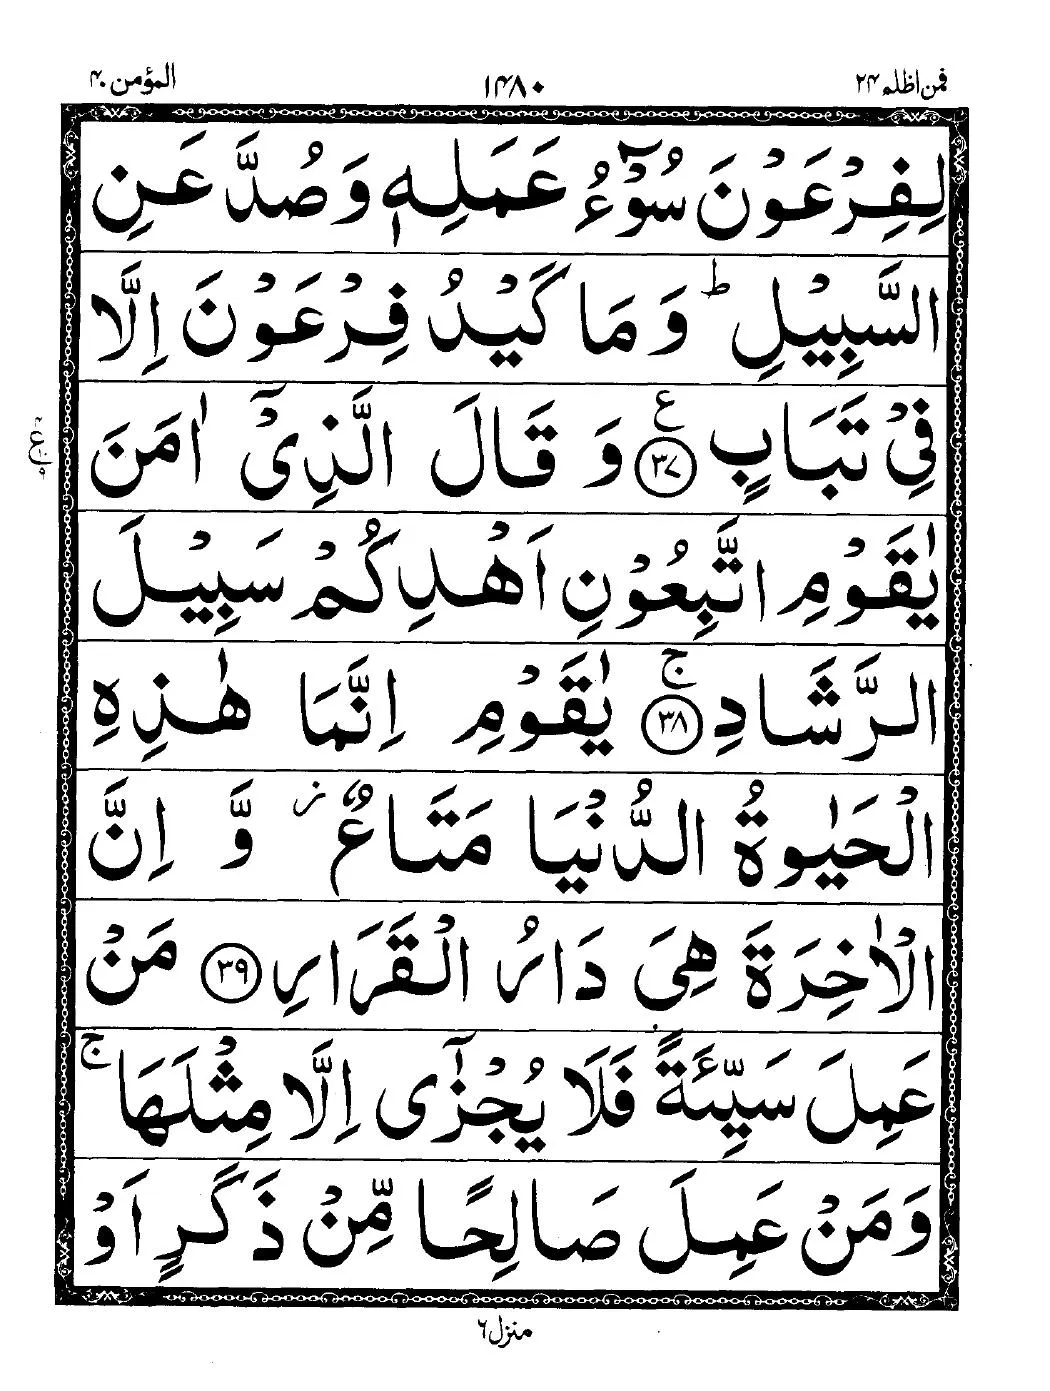 فمن اظلم ۲۴
۱۴۸۰
المؤمن ۴۰
لِفِرْعَوْنَ سُوْٓءُ عَمَلِهٖ وَصُدَّ عَنِ
السَّبِيْلِ ؕ وَمَا كَيْدُ فِرْعَوْنَ اِلَّا
فِيْ تَبَابٍ ﴿۳۷﴾ ع وَ قَالَ الَّذِيْٓ اٰمَنَ
يٰقَوْمِ اتَّبِعُوْنِ اَهْدِكُمْ سَبِيْلَ
الرَّشَادِ ﴿۳۸﴾ ۚ يٰقَوْمِ اِنَّمَا هٰذِهِ
الْحَيٰوةُ الدُّنْيَا مَتَاعٌ ؗ وَّ اِنَّ
الْاٰخِرَةَ هِيَ دَارُ الْقَرَارِ ﴿۳۹﴾ مَنْ
عَمِلَ سَيِّئَةً فَلَا يُجْزٰٓى اِلَّا مِثْلَهَا ۚ
وَمَنْ عَمِلَ صَالِحًا مِّنْ ذَكَرٍ اَوْ
منزل ۶